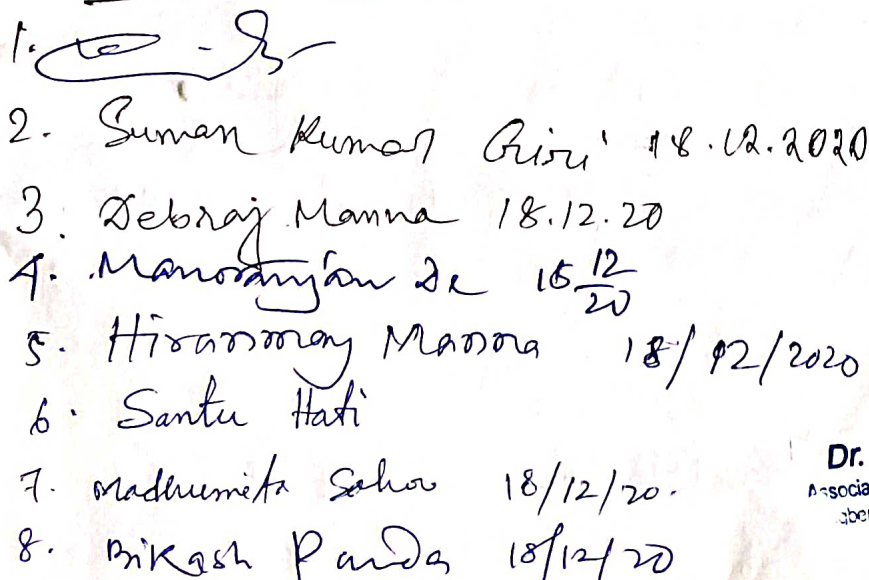 1.
2. Suman Kumar Giri 18.12.2020
3. Debraj Manna 18.12.20
4. Manoranjan De 18 12/20
5. Hiranmay Manna 18/12/2020
6. Santu Hati
7. Madhumita Sahoo 18/12/20.
Dr.
Associa
8. Bikash Panda 18/12/20